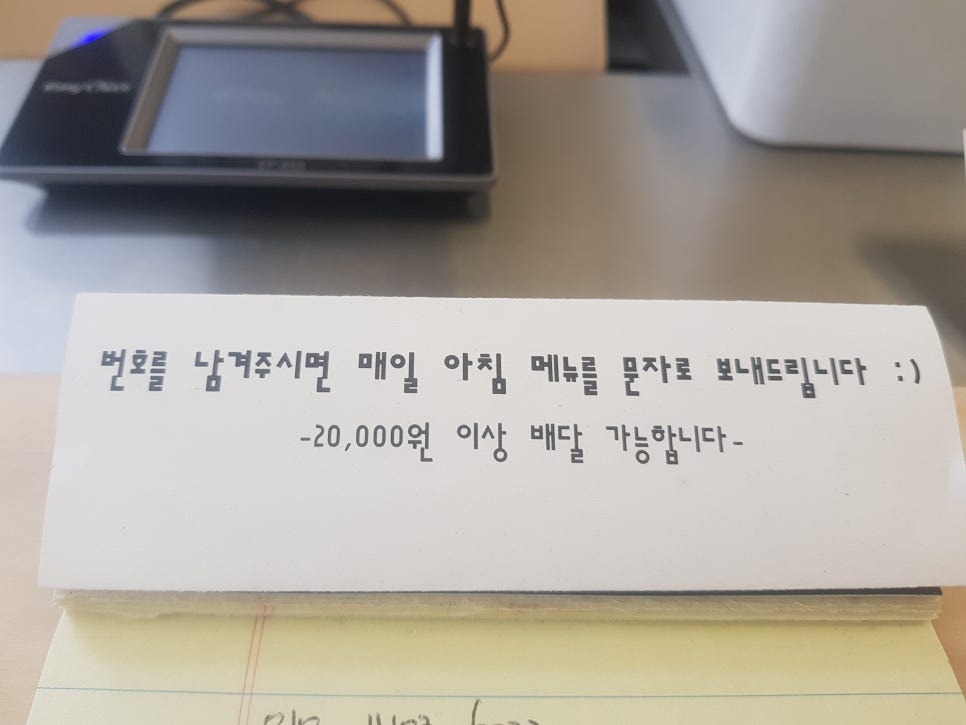 번호를 남겨주시면 매일 아침 메뉴를 문자로 보내드립니다 :)
-20,000원 이상 배달 가능합니다-